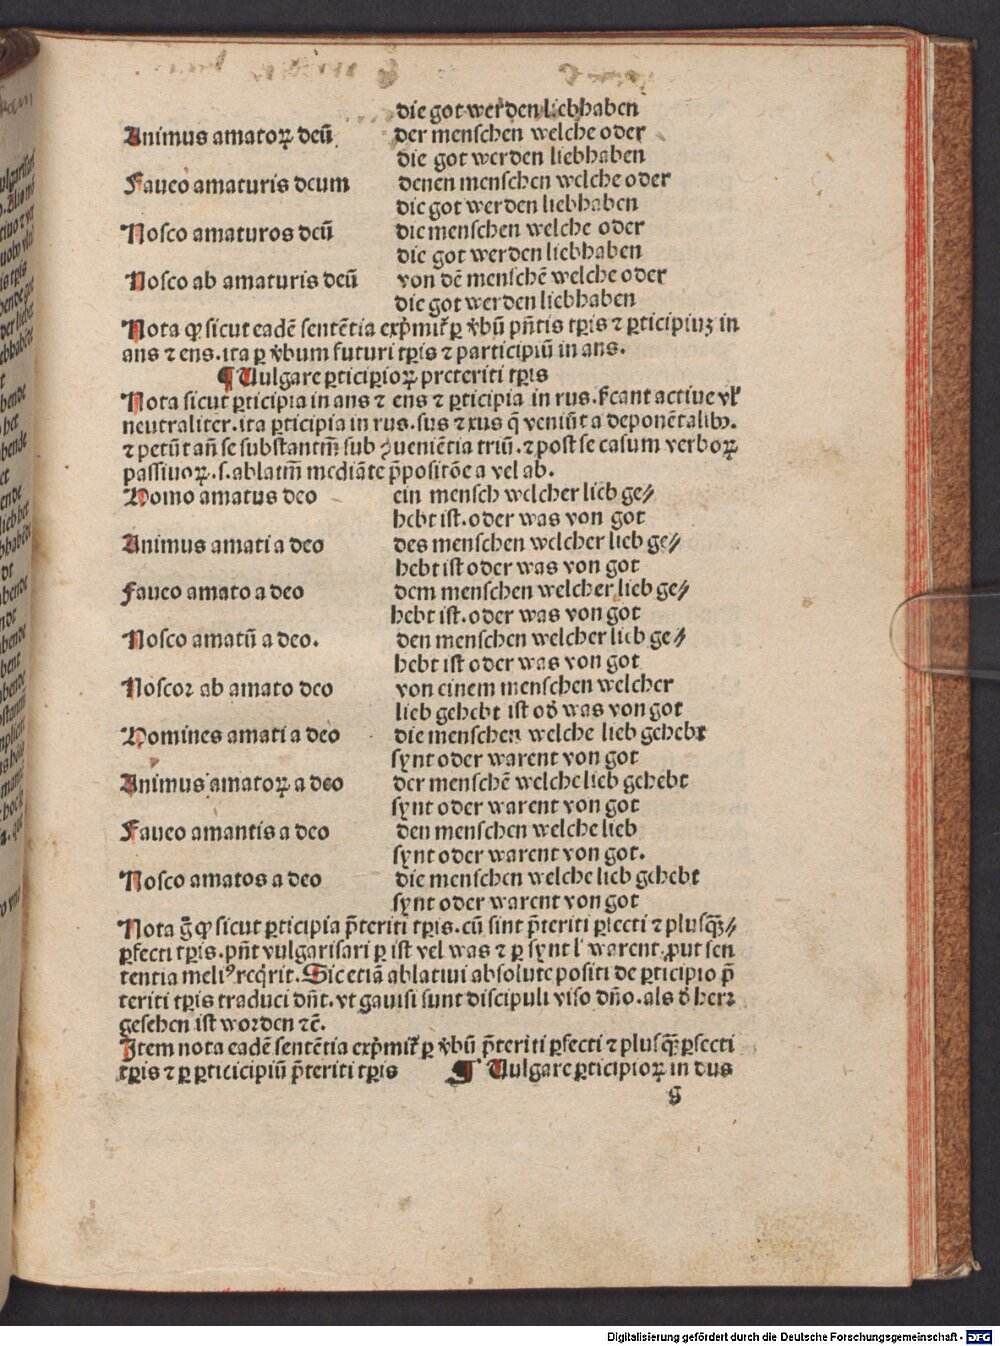 die got werden liebhaben
Animus amatoꝝ deū der menschen welche oder
die got werden liebhaben
Faueo amaturis deum denen menschen welche oder
die got werden liebhaben
Nosco amaturos deū die menschen welche oder
die got werden liebhaben
Nosco ab amaturis deū von dē menschē welche oder
die got werden liebhaben
Nota ꝙ sicut eadē sentētia exp̄mit᷑ ꝑ v̾bū pn̄tis tꝑis ⁊ ꝑticipiuꝫ in
ans ⁊ ens. ita ꝑ v̾bum futuri tꝑis ⁊ participiū in ans.
¶ Uulgare ꝑticipioꝝ preteriti tꝑis
Nota sicut ꝑticipia in ans ⁊ ens ⁊ ꝑticipia in rus. ſīcant actiue vl̓
neutraliter. ita ꝑticipia in rus. sus ⁊ xus q̄ veniūt a deponētalibꝰ.
⁊ petūt an̄ se substantiū sub ꝯueniētia triū. ⁊ post se casum verboꝝ
passiuoꝝ. s. ablatiū mediāte p̄positōe a vel ab.
Homo amatus deo ein mensch welcher lieb ge⸗
hebt ist. oder was von got
Animus amati a deo des menschen welcher lieb ge⸗
hebt ist oder was von got
Faueo amato a deo dem menschen welcher lieb ge⸗
hebt ist. oder was von got
Nosco amatū a deo. den menschen welcher lieb ge⸗
hebt ist oder was von got
Noscor ab amato deo von einem menschen welcher
lieb gehebt ist od̾ was von got
Homines amati a deo die menschen welche lieb gehebt
synt oder warent von got
Animus amatoꝝ a deo der menschē welche lieb gehebt
synt oder warent von got
Faueo amantis a deo den menschen welche lieb
synt oder warent von got.
Nosco amatos a deo die menschen welche lieb gehebt
synt oder warent von got
Nota g̊ ꝙ sicut ꝑticipia p̄teriti tꝑis. cū sint p̄teriti ꝑfecti ⁊ plusq̄⸗
ꝑfecti tꝑis. pn̄t vulgarisari ꝑ ist vel was ⁊ ꝑ synt l̓ warent ꝓut sen
tentia meliꝰ reqͥrit. Sic etiā ablatiui absolute positi de ꝑticipio p̄
teriti tꝑis traduci dn̄t. vt gauisi sunt discipuli viso dn̄o. als d̾ herr
gesehen ist worden ⁊c̄.
Item nota eadē sentētia exp̄mit᷑ ꝑ v̾bū p̄teriti ꝑfecti ⁊ plusq̄ꝑfecti
tꝑis ⁊ ꝑ ꝑticicipiū p̄teriti tꝑis ¶ Uulgare ꝑticipioꝝ in dus
g
Digitalisierung gefördert durch die Deutsche Forschungsgemeinschaft - DFG